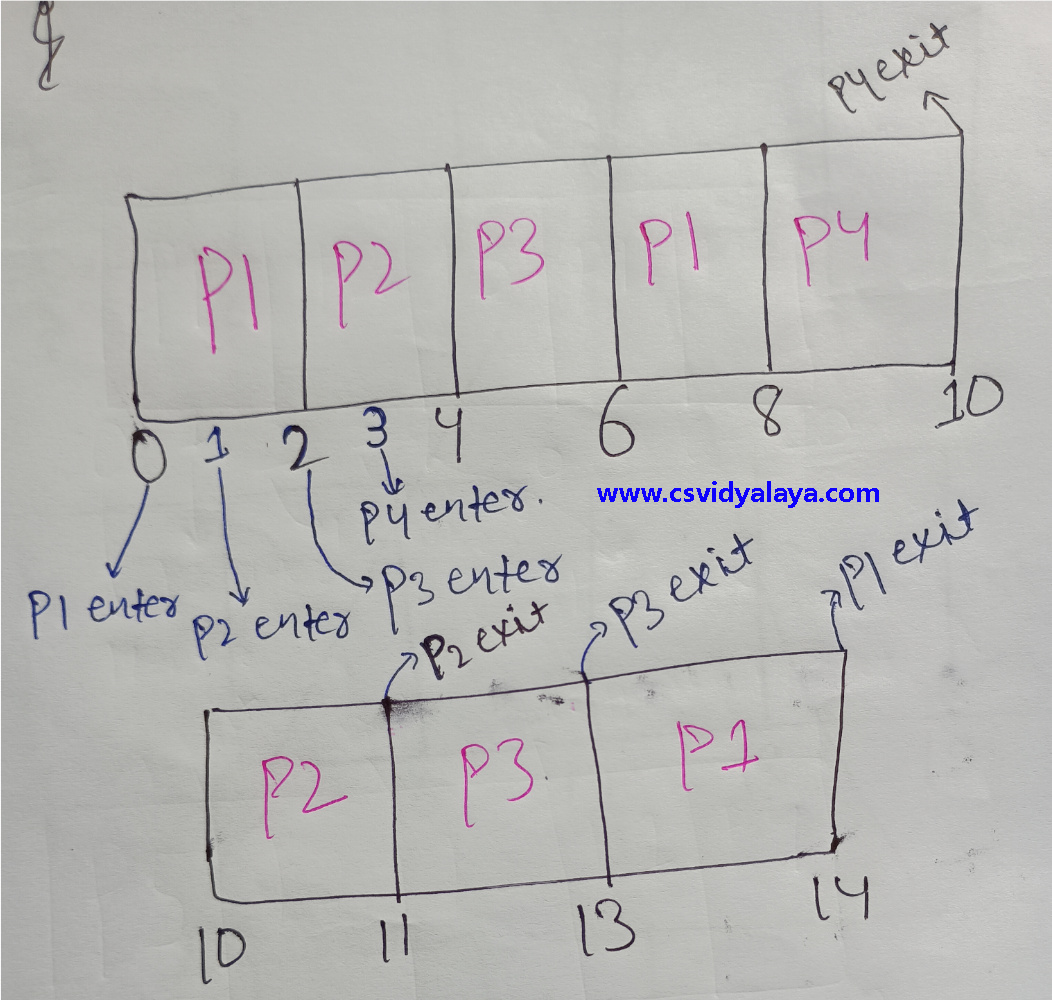 P4 exit
P1 P2 P3 P1 P4
0 1 2 3 4 6 8 10
P4 enter.
www.csvidyalaya.com
P1 enter
P2 enter
P3 enter
P2 exit
P3 exit
P1 exit
P2 P3 P1
10 11 13 14